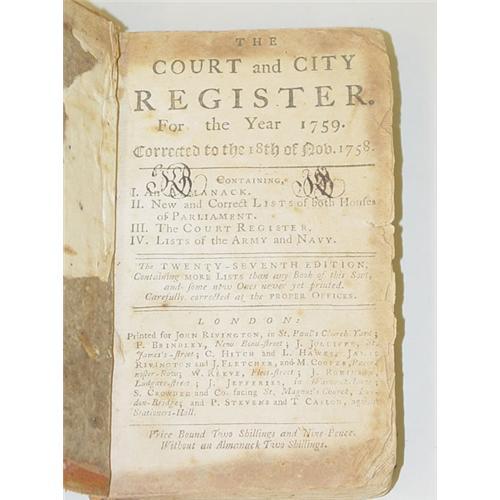 THE
COURT and CITY
REGISTER.
For the Year 1759.
Corrected to the 18th of Nov. 1758.
CONTAINING,
I. An ALMANACK.
II. New and Correct LISTS of both Houses
of PARLIAMENT.
III. The COURT REGISTER.
IV. LISTS of the ARMY and NAVY.
The TWENTY-SEVENTH EDITION,
Containing MORE LISTS than any Book of this Sort,
and some new Ones never yet printed.
Carefully corrected at the PROPER OFFICES.
LONDON:
Printed for JOHN RIVINGTON, in St. Paul's Church Yard;
BRINDLEY, New Bond-street; J. JOLLIFFE, St.
James's-street; C. HITCH and L. HAWES, JAMES
RIVINGTON and J. FLETCHER, and M. COOPER, Pater
noster-Row; W. REEVE, Fleet-street; J. ROBINSON,
Ludgate-street; J. JEFFERIES, in Lane;
S. CROWDER and Co. facing St. Magnus's Church, Lon-
don-Bridge; and P. STEVENS and T. CASLON,
Stationers-Hall.
Price Bound Two Shillings and Nine-Pence.
Without an Almanack Two Shillings.